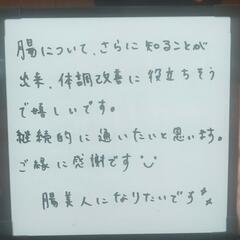 腸について、さらに知ることが
出来、体調改善に役立ちそう
で嬉しいです。
継続的に通いたいと思います。
ご縁に感謝です
腸美人になりたいです